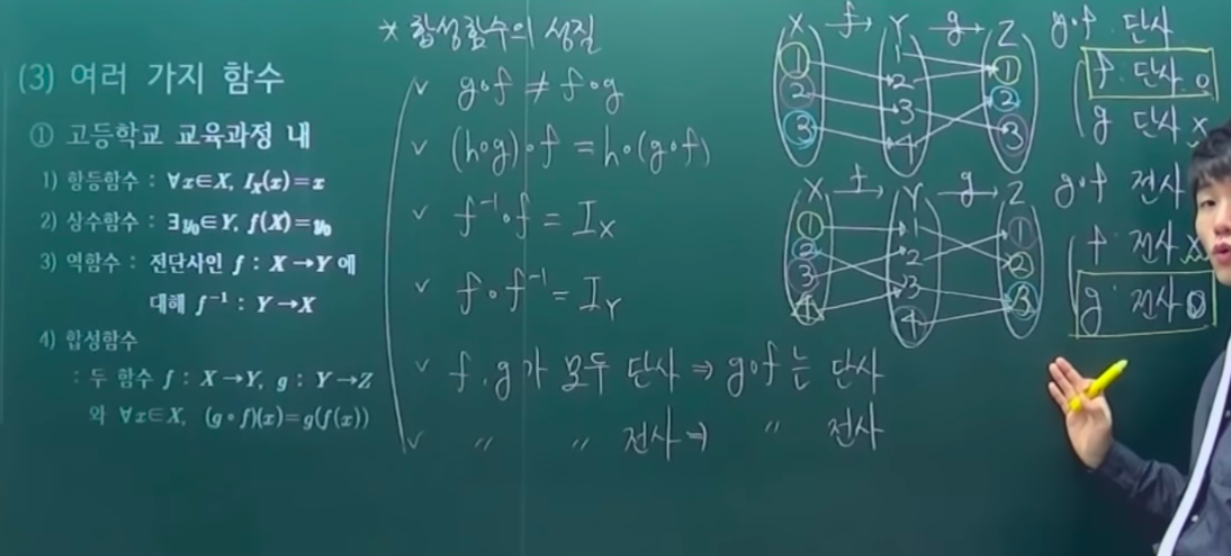 (3) 여러 가지 함수
① 고등학교 교육과정 내
1) 항등함수 : ∀x∈X, I_X(x)=x
2) 상수함수 : ∃y₀∈Y, f(X)=y₀
3) 역함수 : 전단사인 f : X→Y 에
대해 f⁻¹ : Y→X
4) 합성함수
: 두 함수 f : X→Y, g : Y→Z
와 ∀x∈X, (g∘f)(x)=g(f(x))
* 합성함수의 성질
✓ g∘f ≠ f∘g
✓ (h∘g)∘f = h∘(g∘f)
✓ f⁻¹∘f = I_X
✓ f∘f⁻¹ = I_Y
✓ f, g가 모두 단사 ⇒ g∘f는 단사
✓ 〃 〃 전사 ⇒ 〃 전사
X f→ Y g→ Z
1 1 1
2 2 2
3 3 3
4
g∘f 단사
f 단사 o
g 단사 x
X f→ Y g→ Z
1 1 1
2 2 2
3 3 3
4 4
g∘f 전사
f 전사 x
g 전사 o